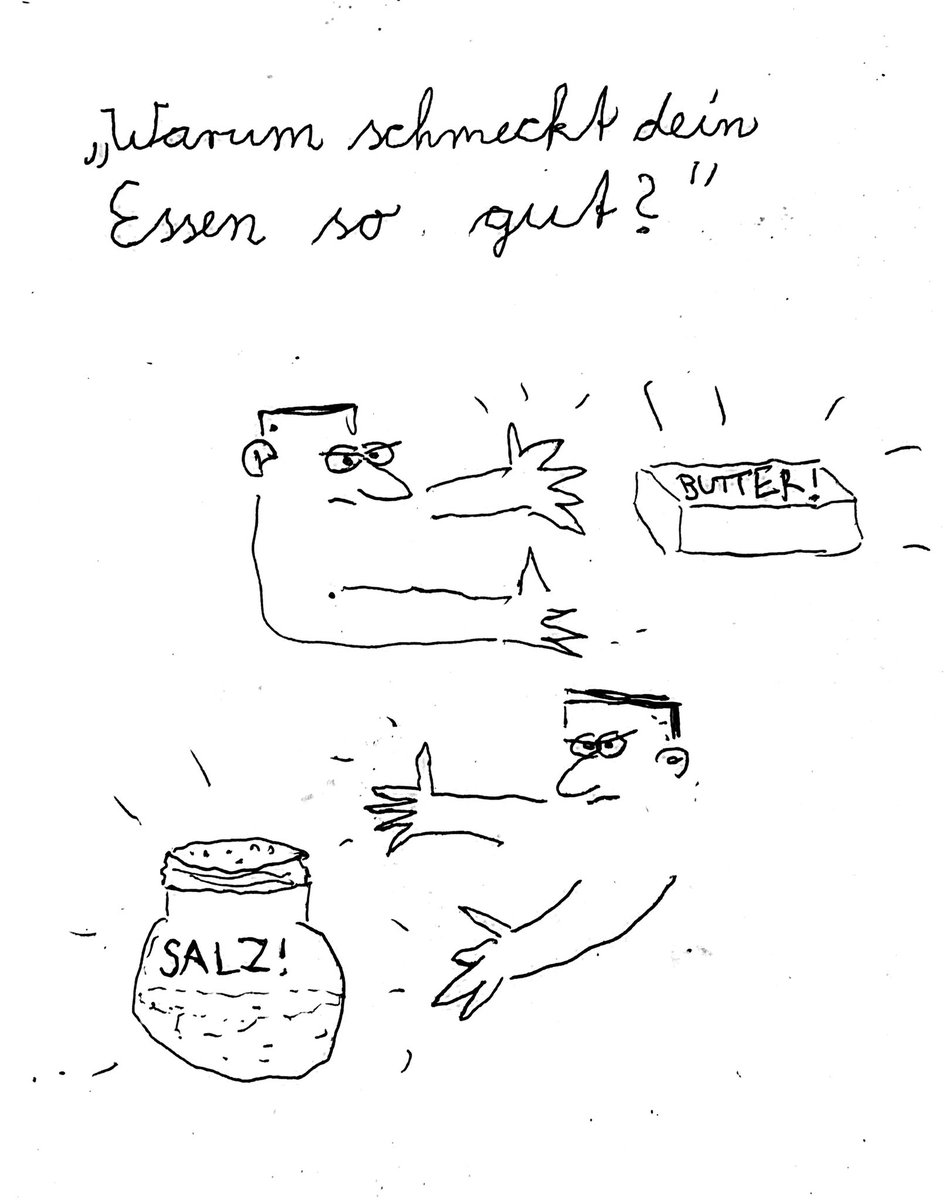 „Warum schmeckt dein
Essen so gut?"
BUTTER!
SALZ!